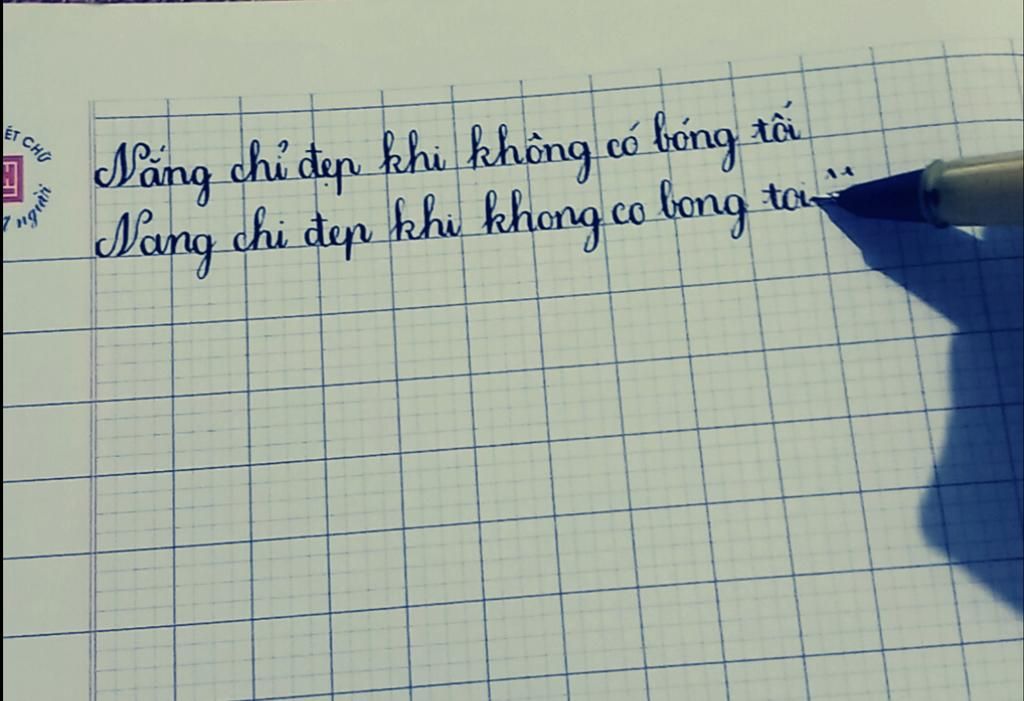 ẾT CHỮ
H
người
Nắng chỉ đẹp khi không có bóng tối
Nang chi đep khi khong co bong toi